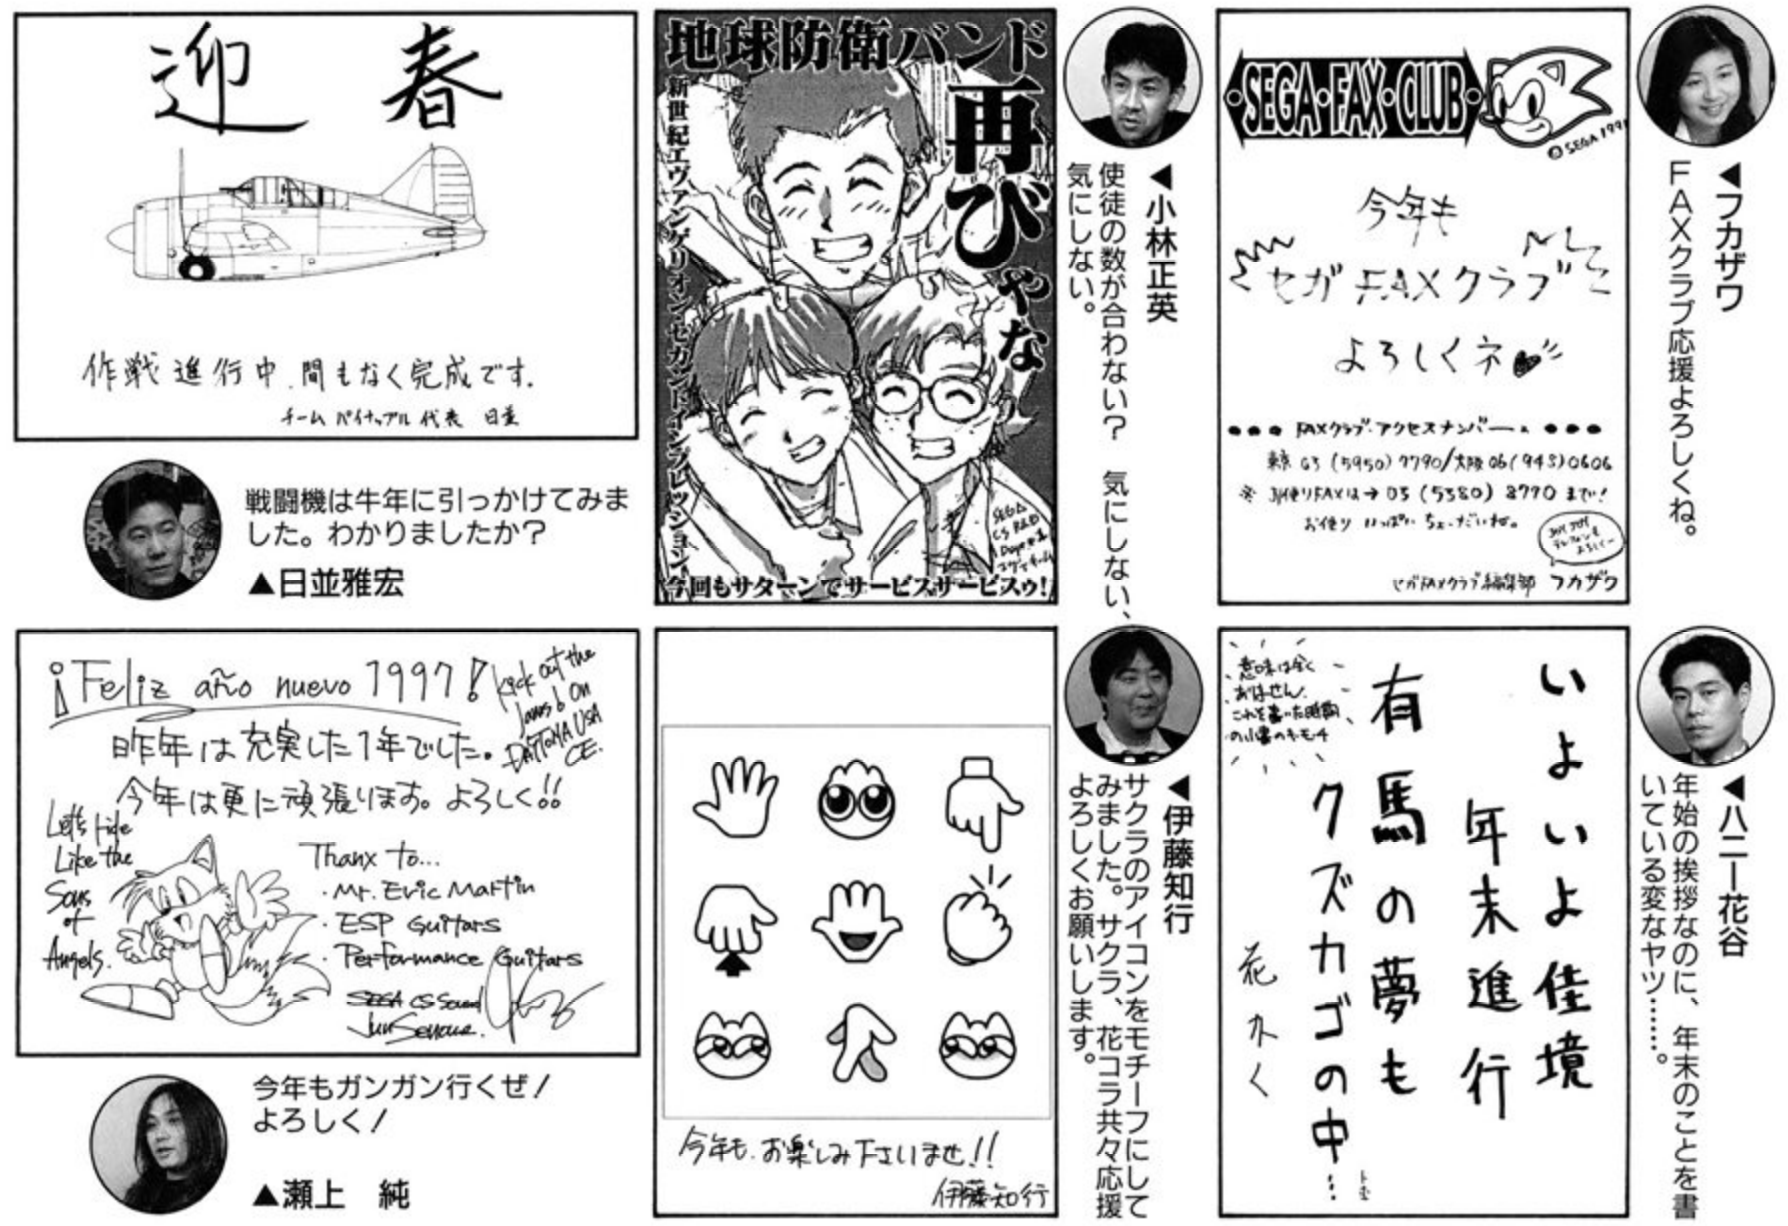 迎 春
作戦進行中、間もなく完成です。
チーム パイナップル 代表 日並
戦闘機は牛年に引っかけてみま
した。わかりましたか?
▲日並雅宏
地球防衛バンド
再びやな
新世紀エヴァンゲリオン・セカンドインプレッション
SEGA
CS R&D
今回もサターンでサービスサービスゥ!
◀小林正英
使徒の数が合わない? 気にしない、
気にしない。
SEGA・FAX・CLUB
©SEGA 1991
今年も
セガFAXクラブ
よろしくネ
●●● FAXクラブ・アクセスナンバー ●●●
東京 03(5950)7790/大阪 06(948)0606
お便り いっぱい ちょーだいね。
セガFAXクラブ編集部 フカザワ
◀フカザワ
FAXクラブ応援よろしくね。
¡Feliz año nuevo 1997!
Kick out the
Jams b on
DAYTONA USA
CE.
昨年は充実した1年でした。
今年は更に頑張ります。よろしく!!
Let's ride
Like the
Sons
of
Angels.
Thanx to...
・Mr. Eric Martin
・ESP Guitars
・Performance Guitars
SEGA CS Sound
Jun Senoue.
今年もガンガン行くぜ!
よろしく!
▲瀬上 純
今年も、お楽しみ下さいませ!!
伊藤知行
◀伊藤知行
サクラのアイコンをモチーフにして
みました。サクラ、花コラ共々応援
よろしくお願いします。
いよいよ佳境
年末進行
有馬の夢も
クズカゴの中…
花かく
意味は全く
ありません。
これを書いた時期
の心境のキモチ
◀八二一花谷
年始の挨拶なのに、年末のことを書
いている変なヤツ……。